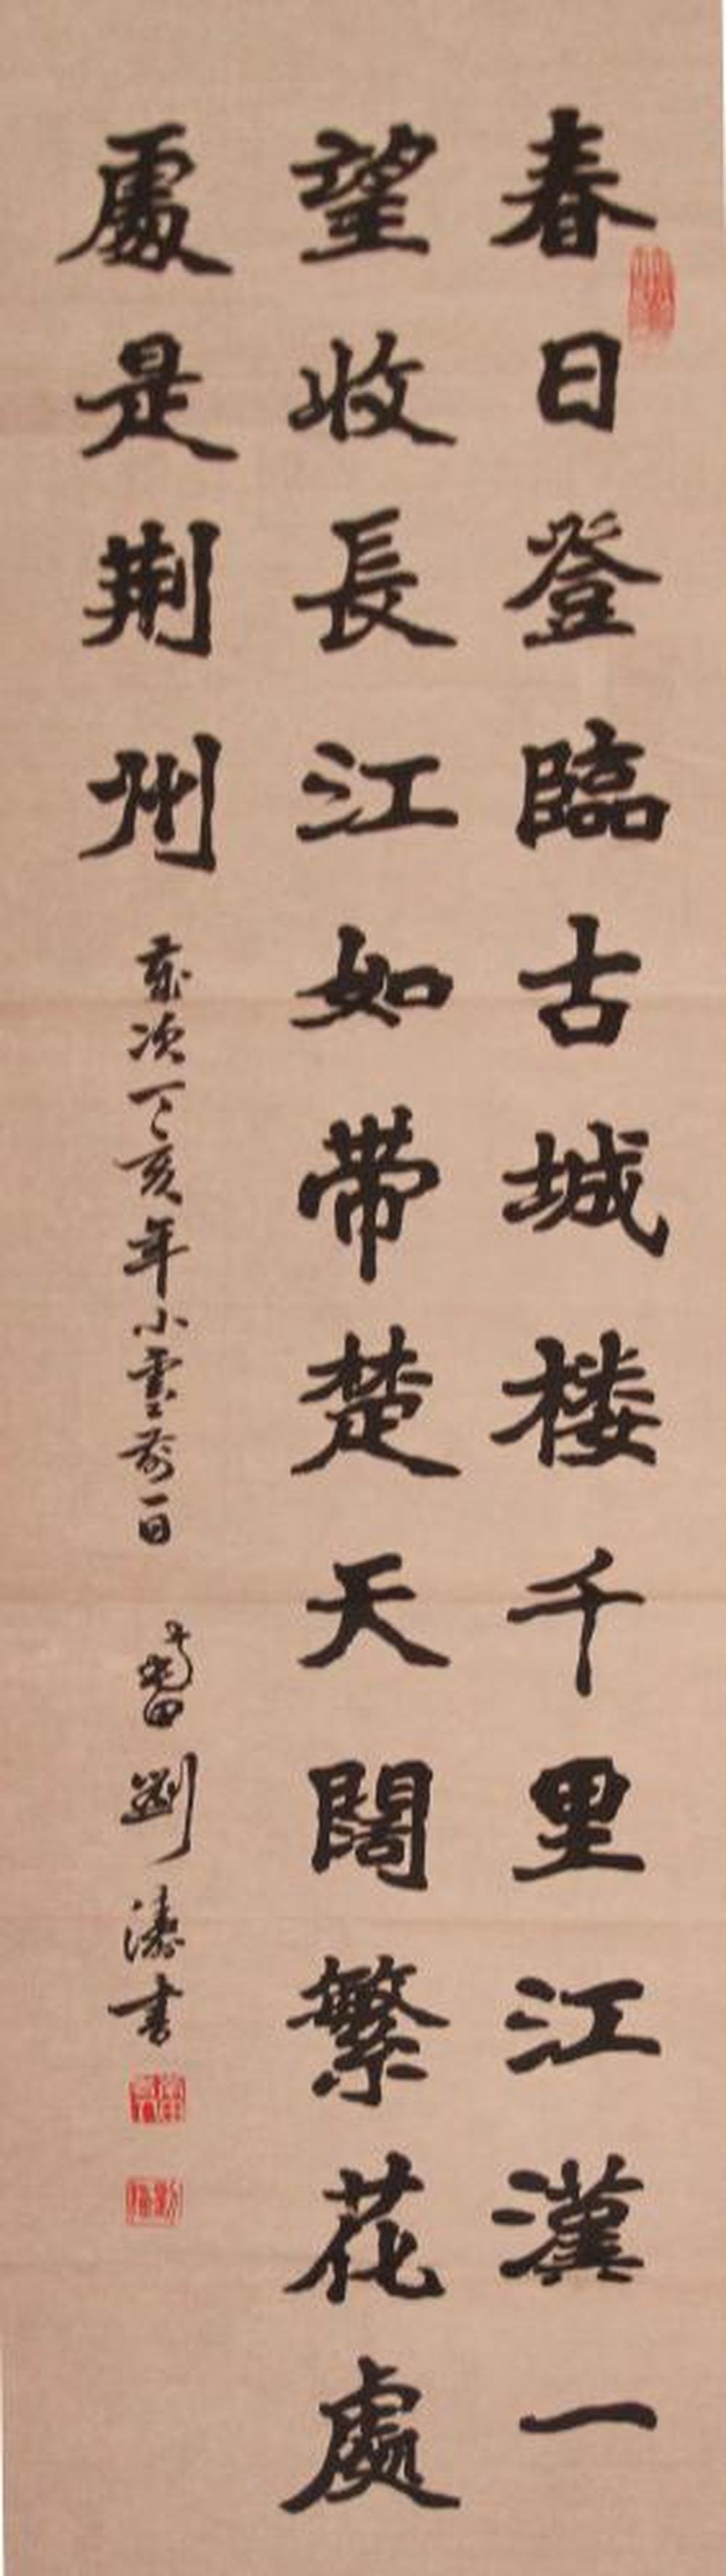 春日登臨古城楼千里江漢一
望收長江如带楚天闊繁花處
處是荆州
歲次丁亥年小雪前一日 劉濤書